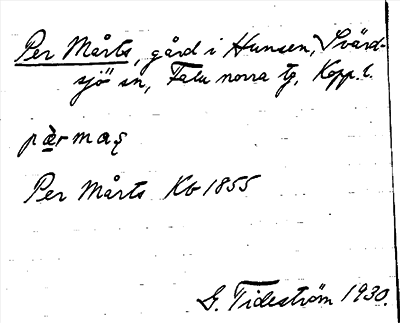 Per Mårts, gård i Hunsen, Svärd-
sjö sn, Falu norra tg, Kopp. l.
pæ̀rmaş
Per Mårts Kb 1855
G. Tideström 1930.